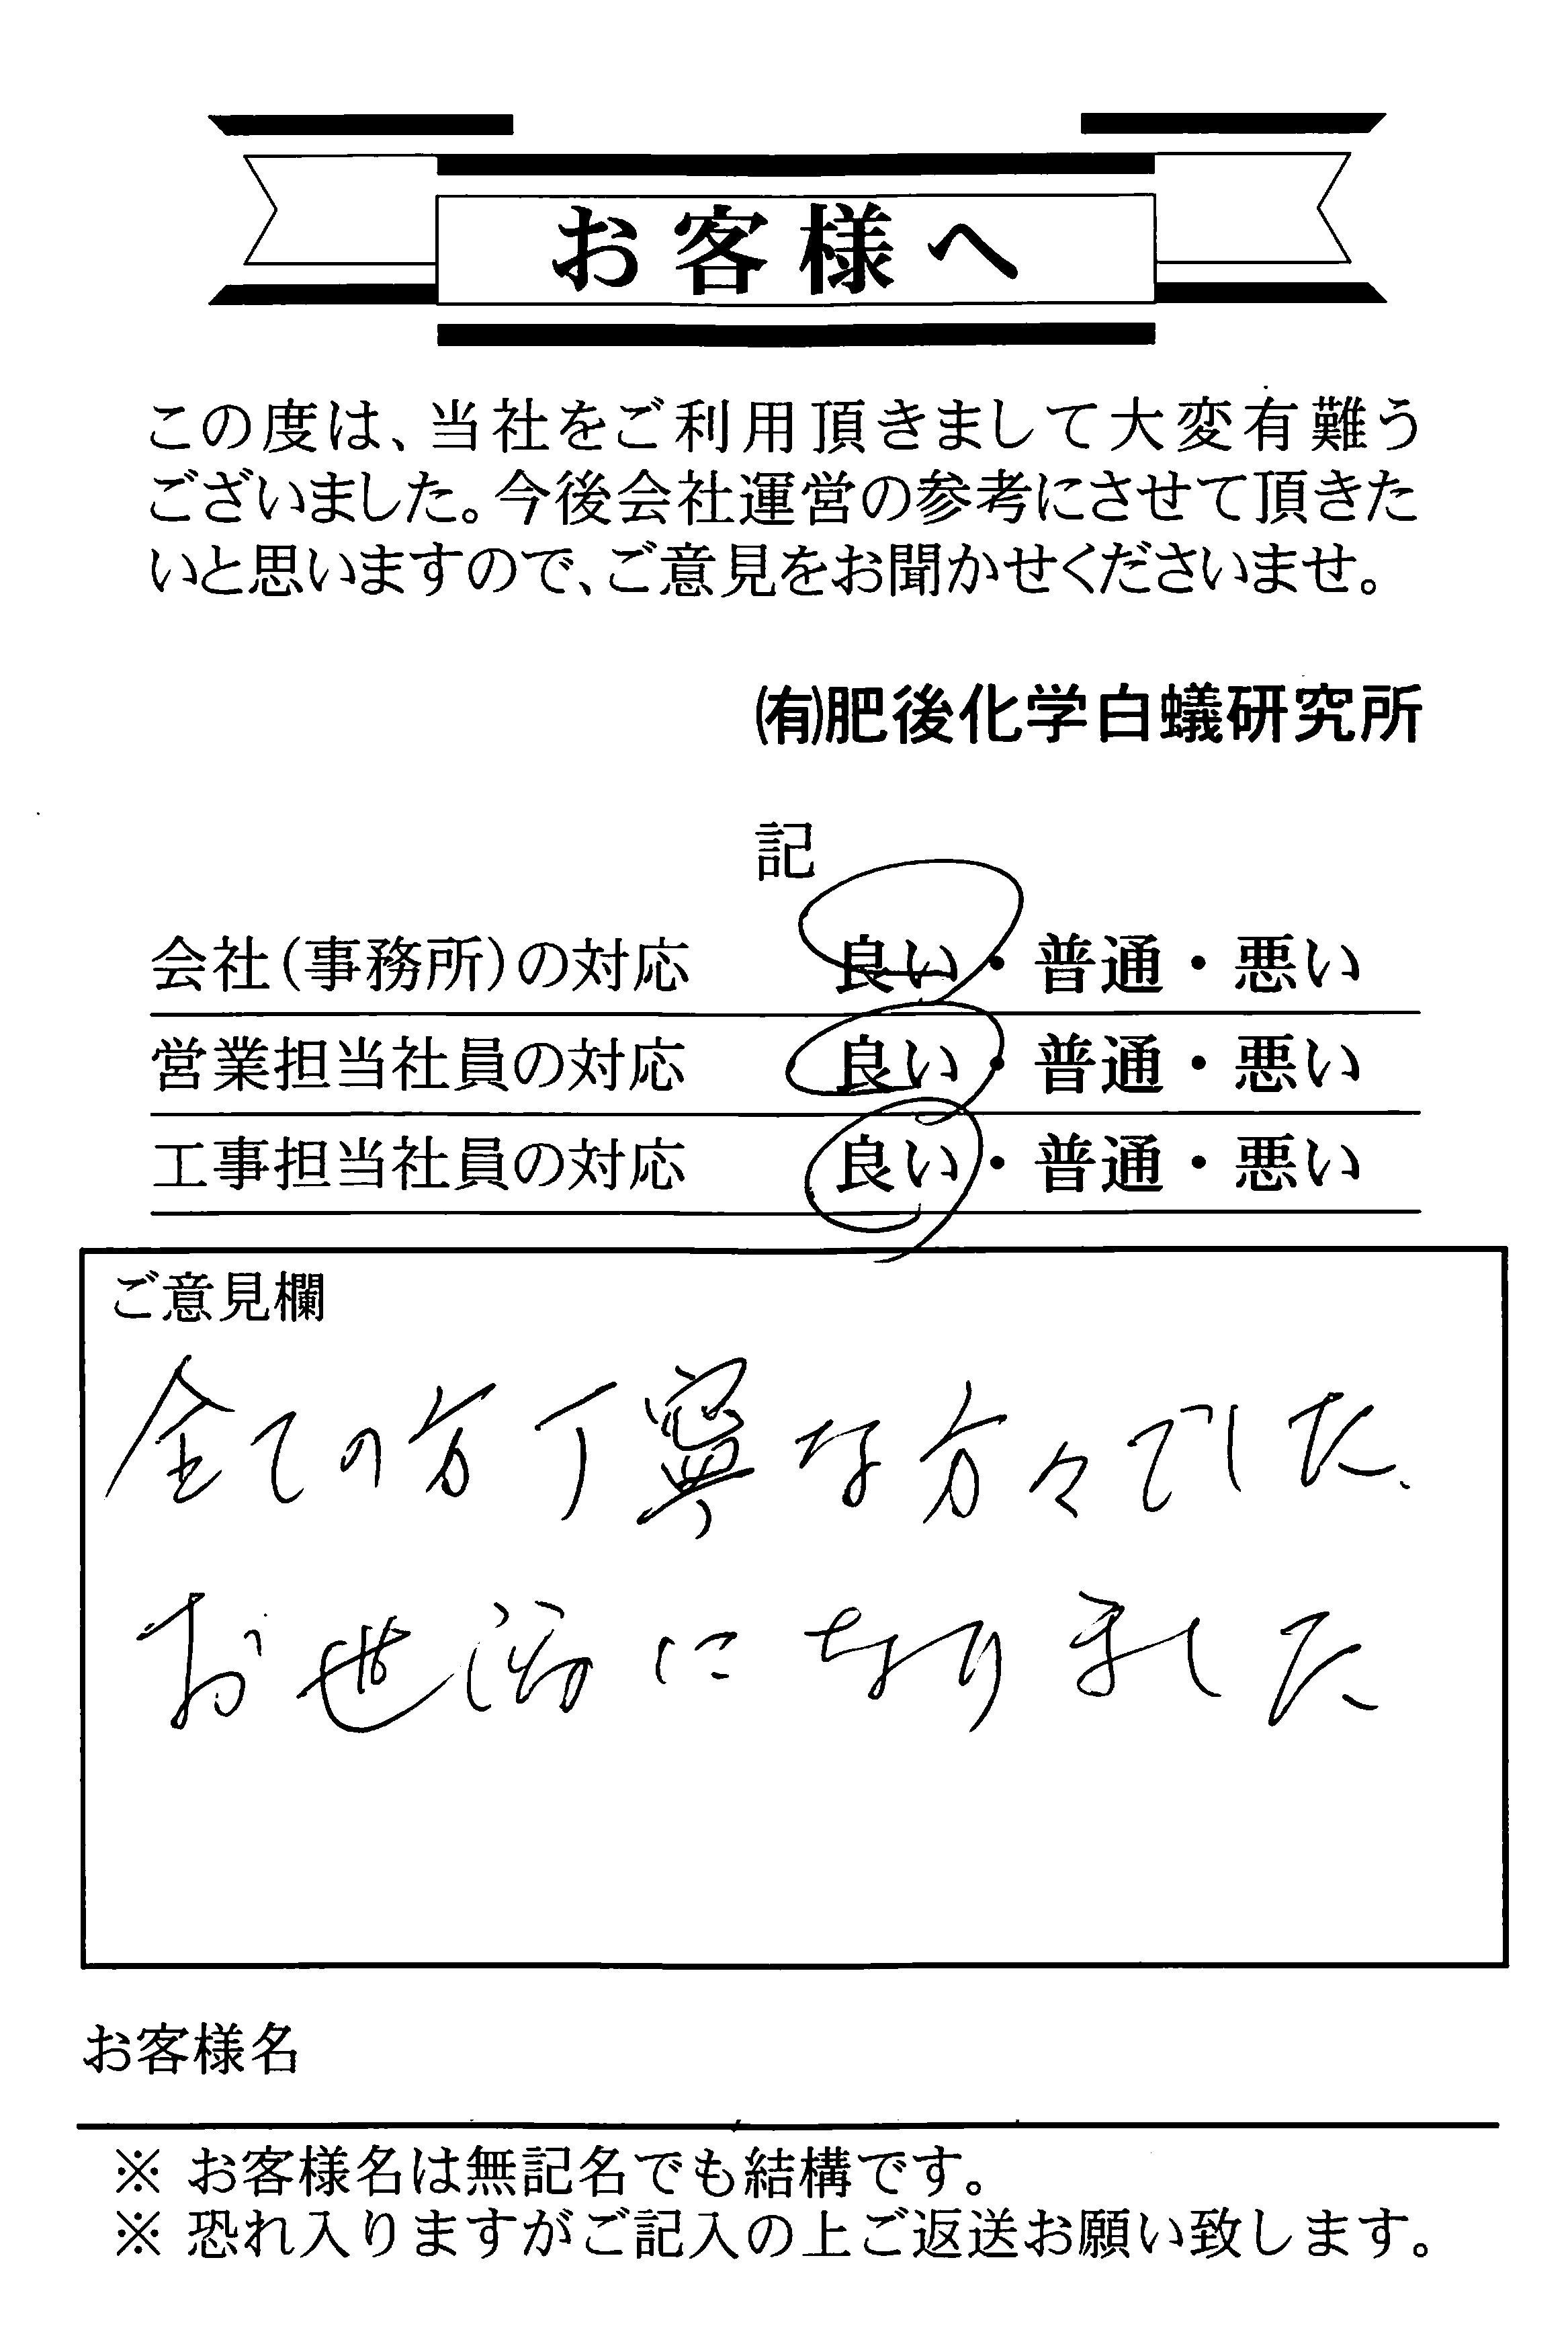 お客様へ
この度は、当社をご利用頂きまして大変有難う
ございました。今後会社運営の参考にさせて頂きた
いと思いますので、ご意見をお聞かせくださいませ。
㈲肥後化学白蟻研究所
記
会社(事務所)の対応 良い・普通・悪い
営業担当社員の対応 良い・普通・悪い
工事担当社員の対応 良い・普通・悪い
ご意見欄
全ての方丁寧な方々でした、
お世話になりました
お客様名
※ お客様名は無記名でも結構です。
※ 恐れ入りますがご記入の上ご返送お願い致します。